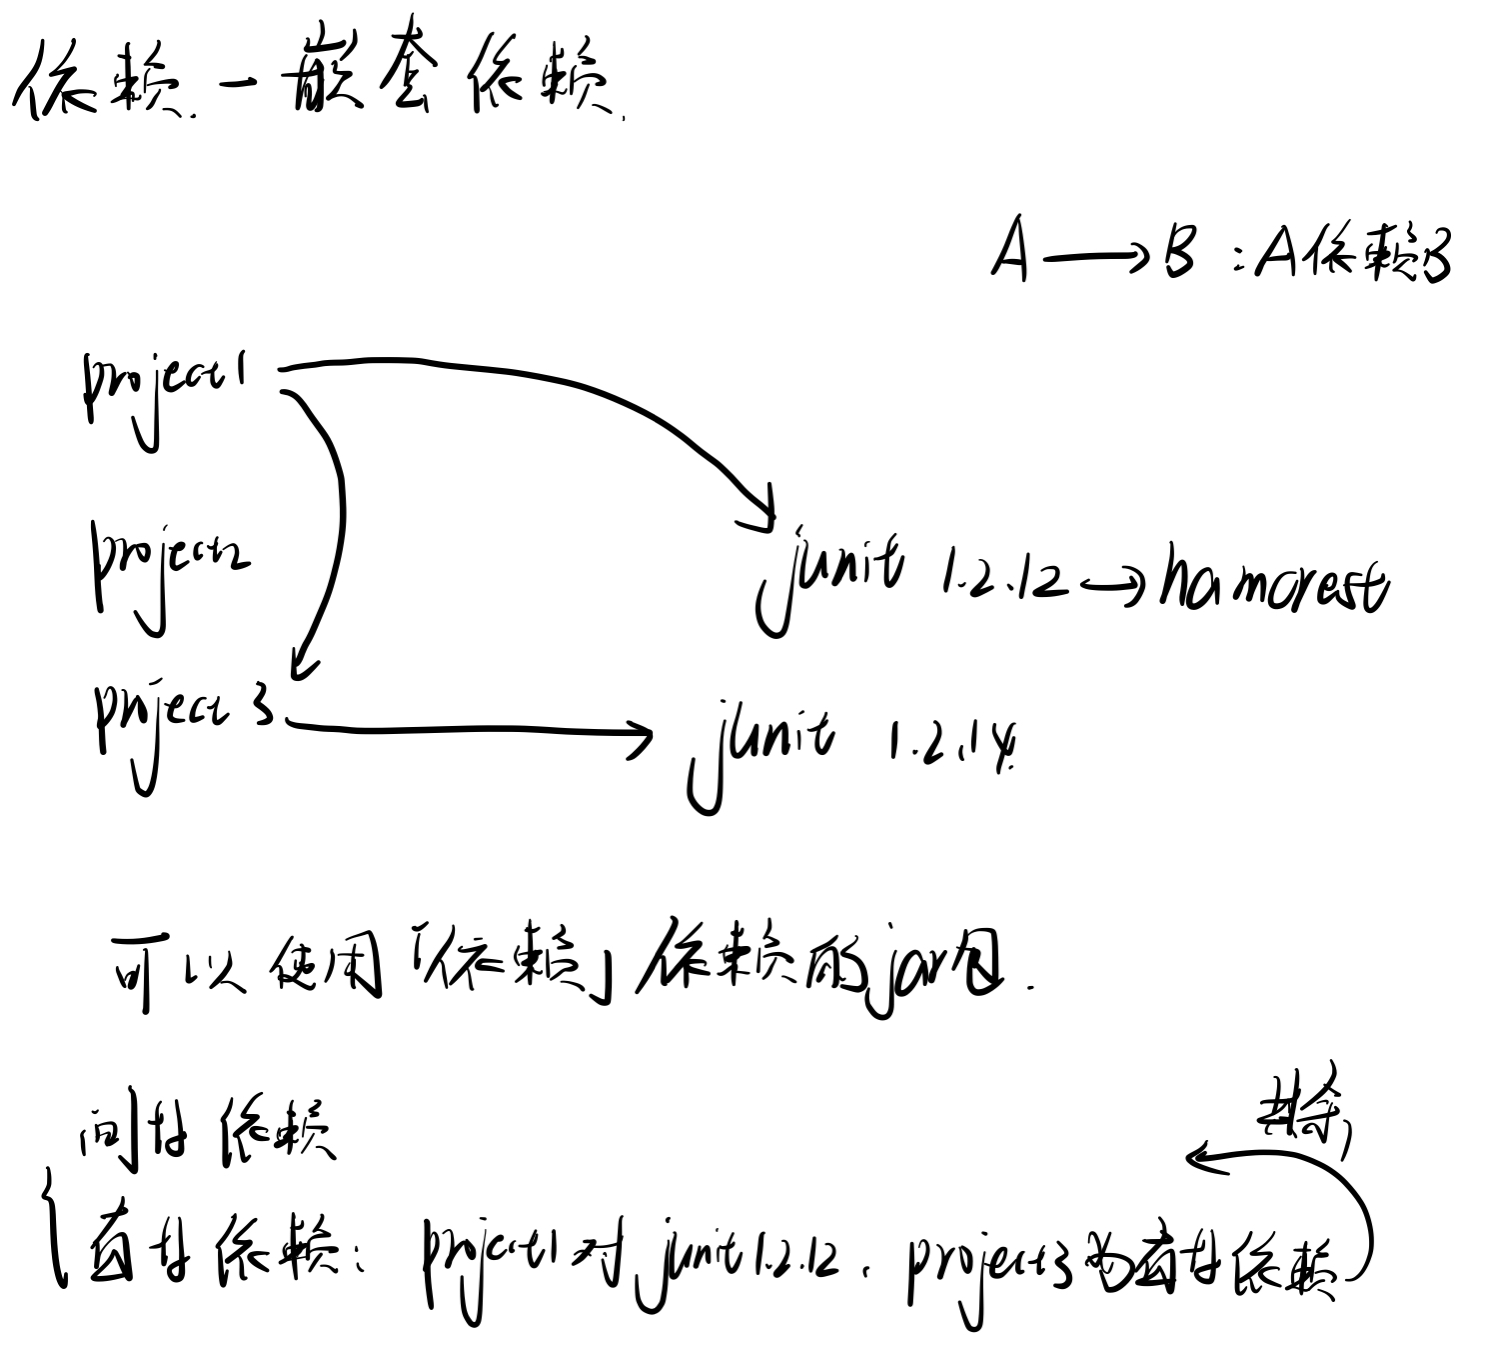 依赖.一嵌套依赖.
A → B : A依赖B
project1
project2
junit 1.2.12 → hamcrest
project 3
junit 1.2.14.
可以使用「依赖」依赖的jar包.
间接依赖
直接依赖: project1对junit1.2.12. project3为直接依赖